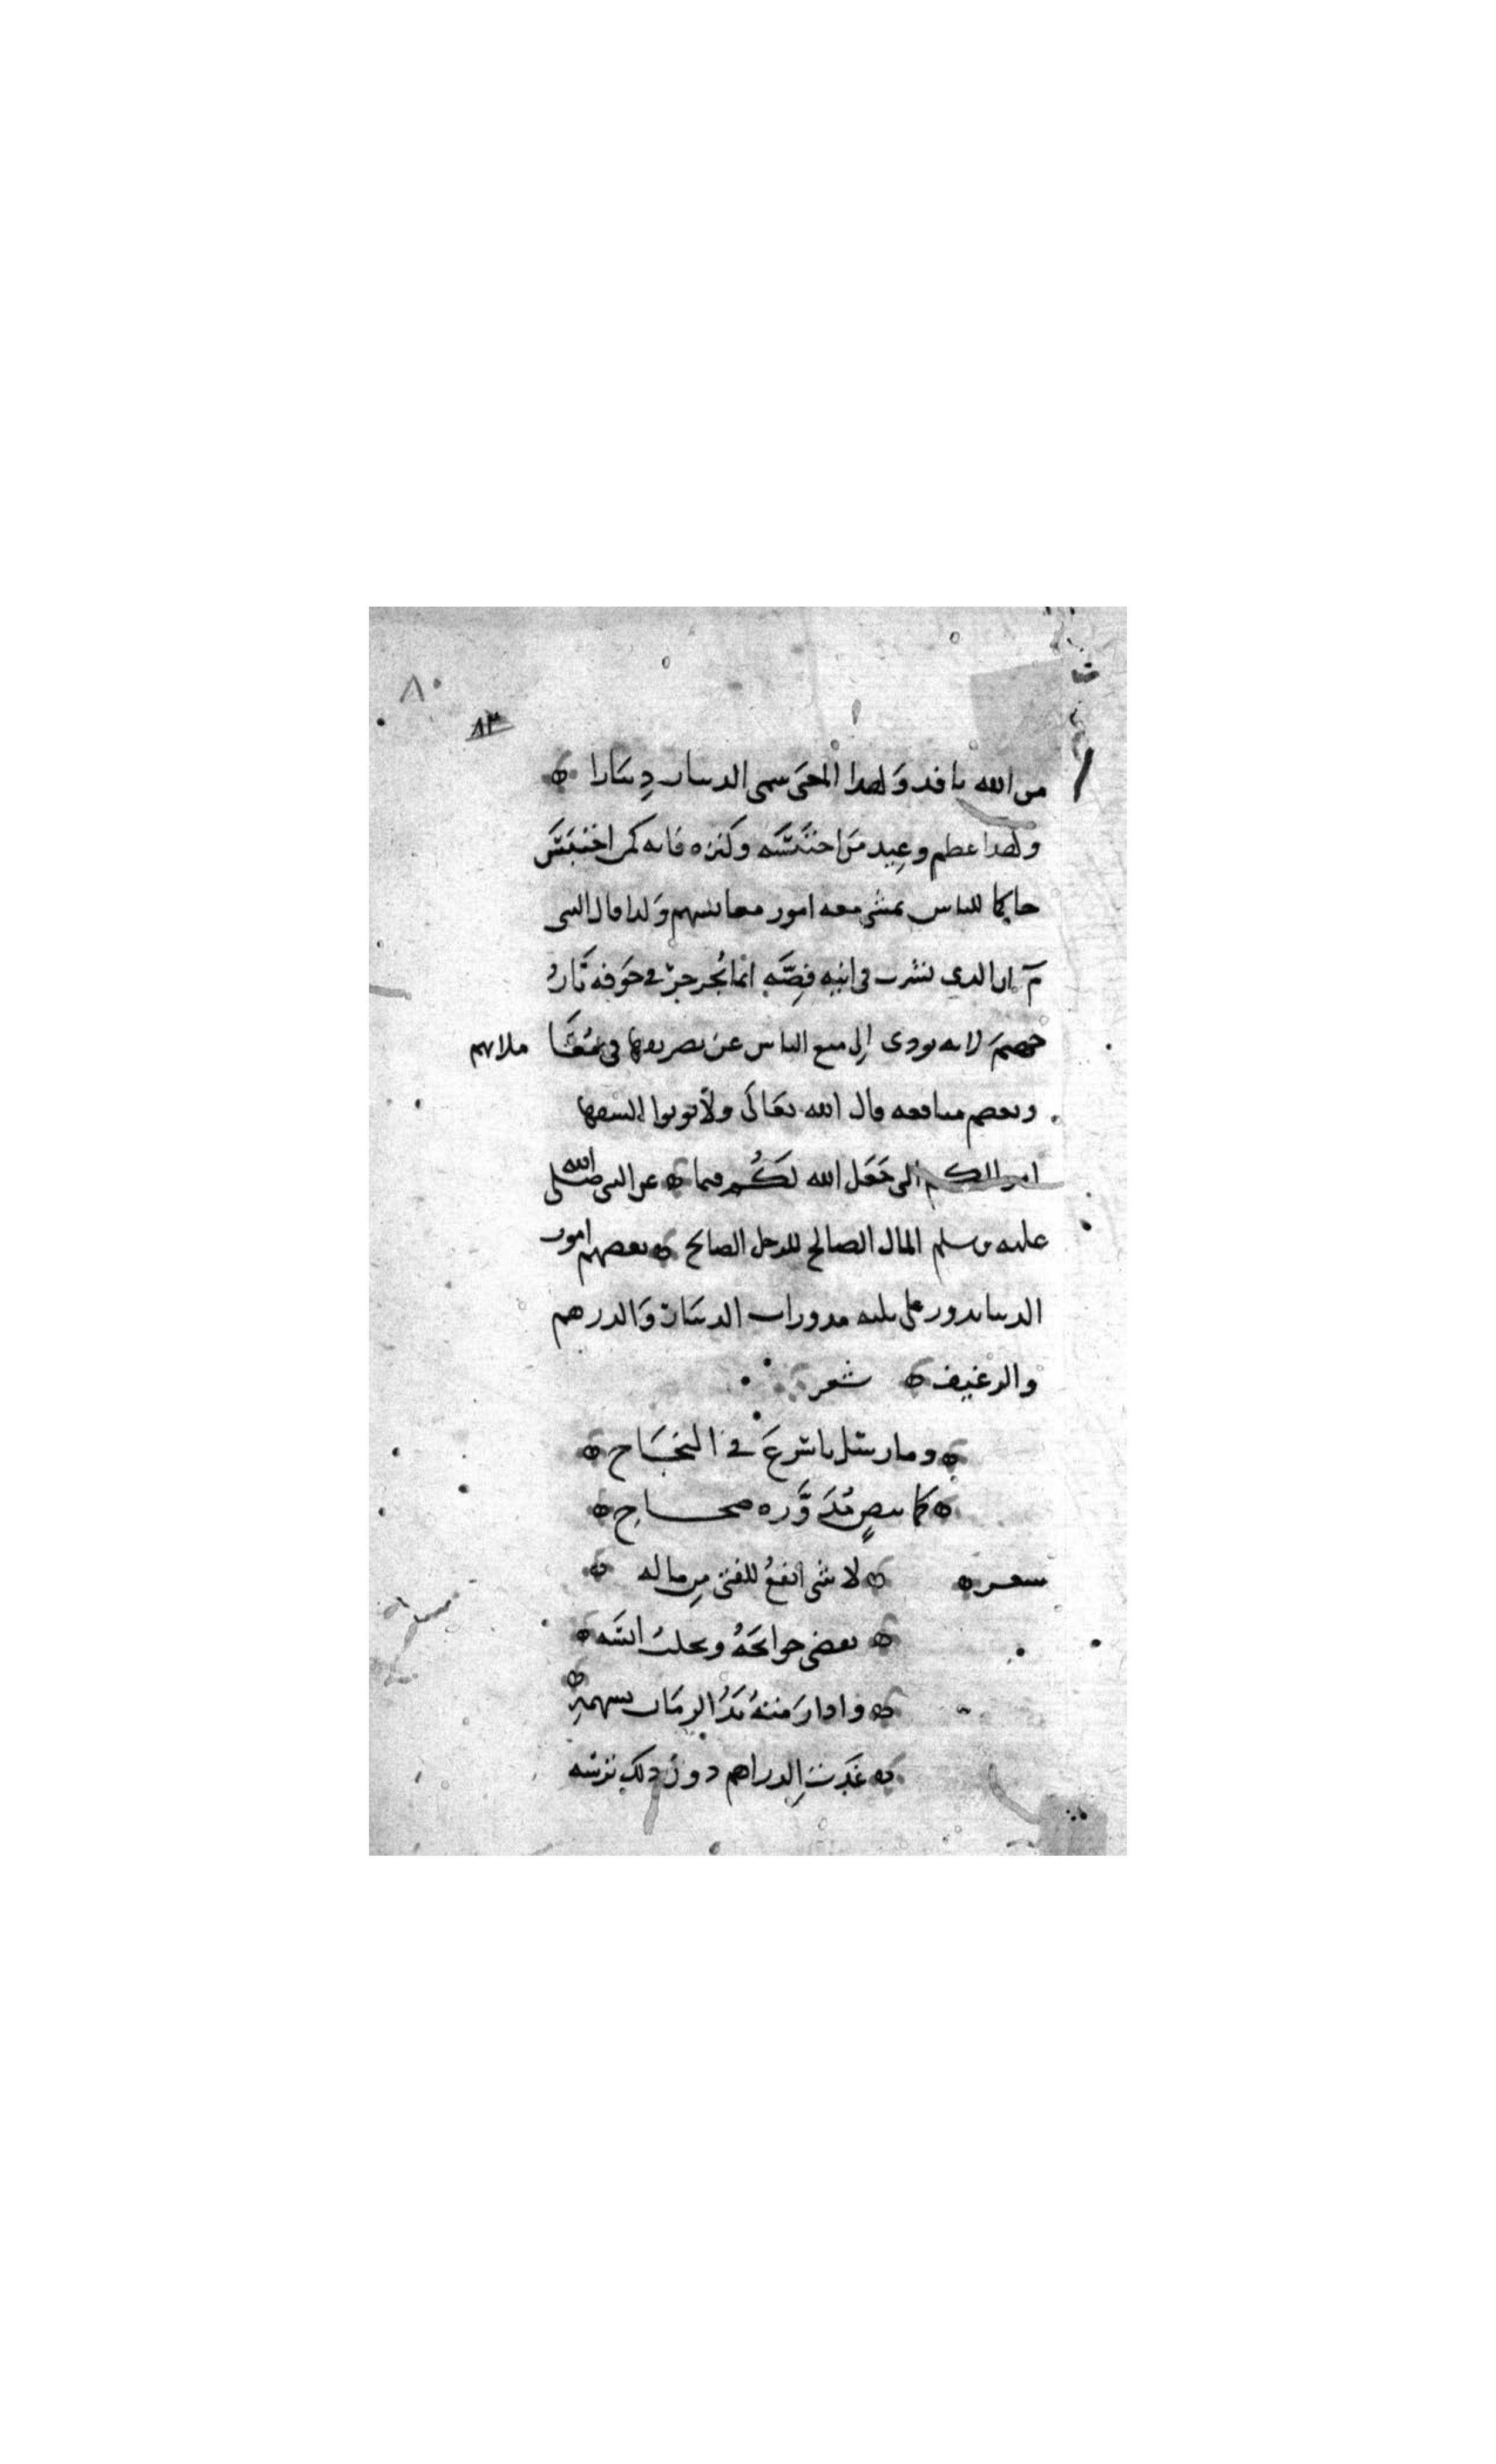 ٨٠
٨٣
من الله نافد ولهذا المعنى سمى الدينار دينارا
ولهذا عظم وعيد من احتبسه وكنزه فانه كمن احتبس
حاكما للناس تمشى معه امور معائشهم ولذا قال النبى
ان الذى يشرب فى انيه فضه انما يجرجر فى جوفه نار
جهنم لانه يودى الى منع الناس عن تصريفها فى
وبعضهم منافعه قال الله تعالى ولا توتوا السفها
اموالكم التى جعل الله لكم قيما عن النبى صلى الله
عليه وسلم المال الصالح للرجل الصالح بعضهم امور
الدنيا تدور على ثلثه مدورات الدينار والدرهم
والرغيف شعر
وما رسل باسرع فى النجاح
كما بيض مدوره صحاح
شعر لا شى انفع للفتى من ماله
يقضى حوائجه ويجلب انسه
واذا رمته يد الزمان بسهمه
غدت الدراهم دون ذلك ترسه